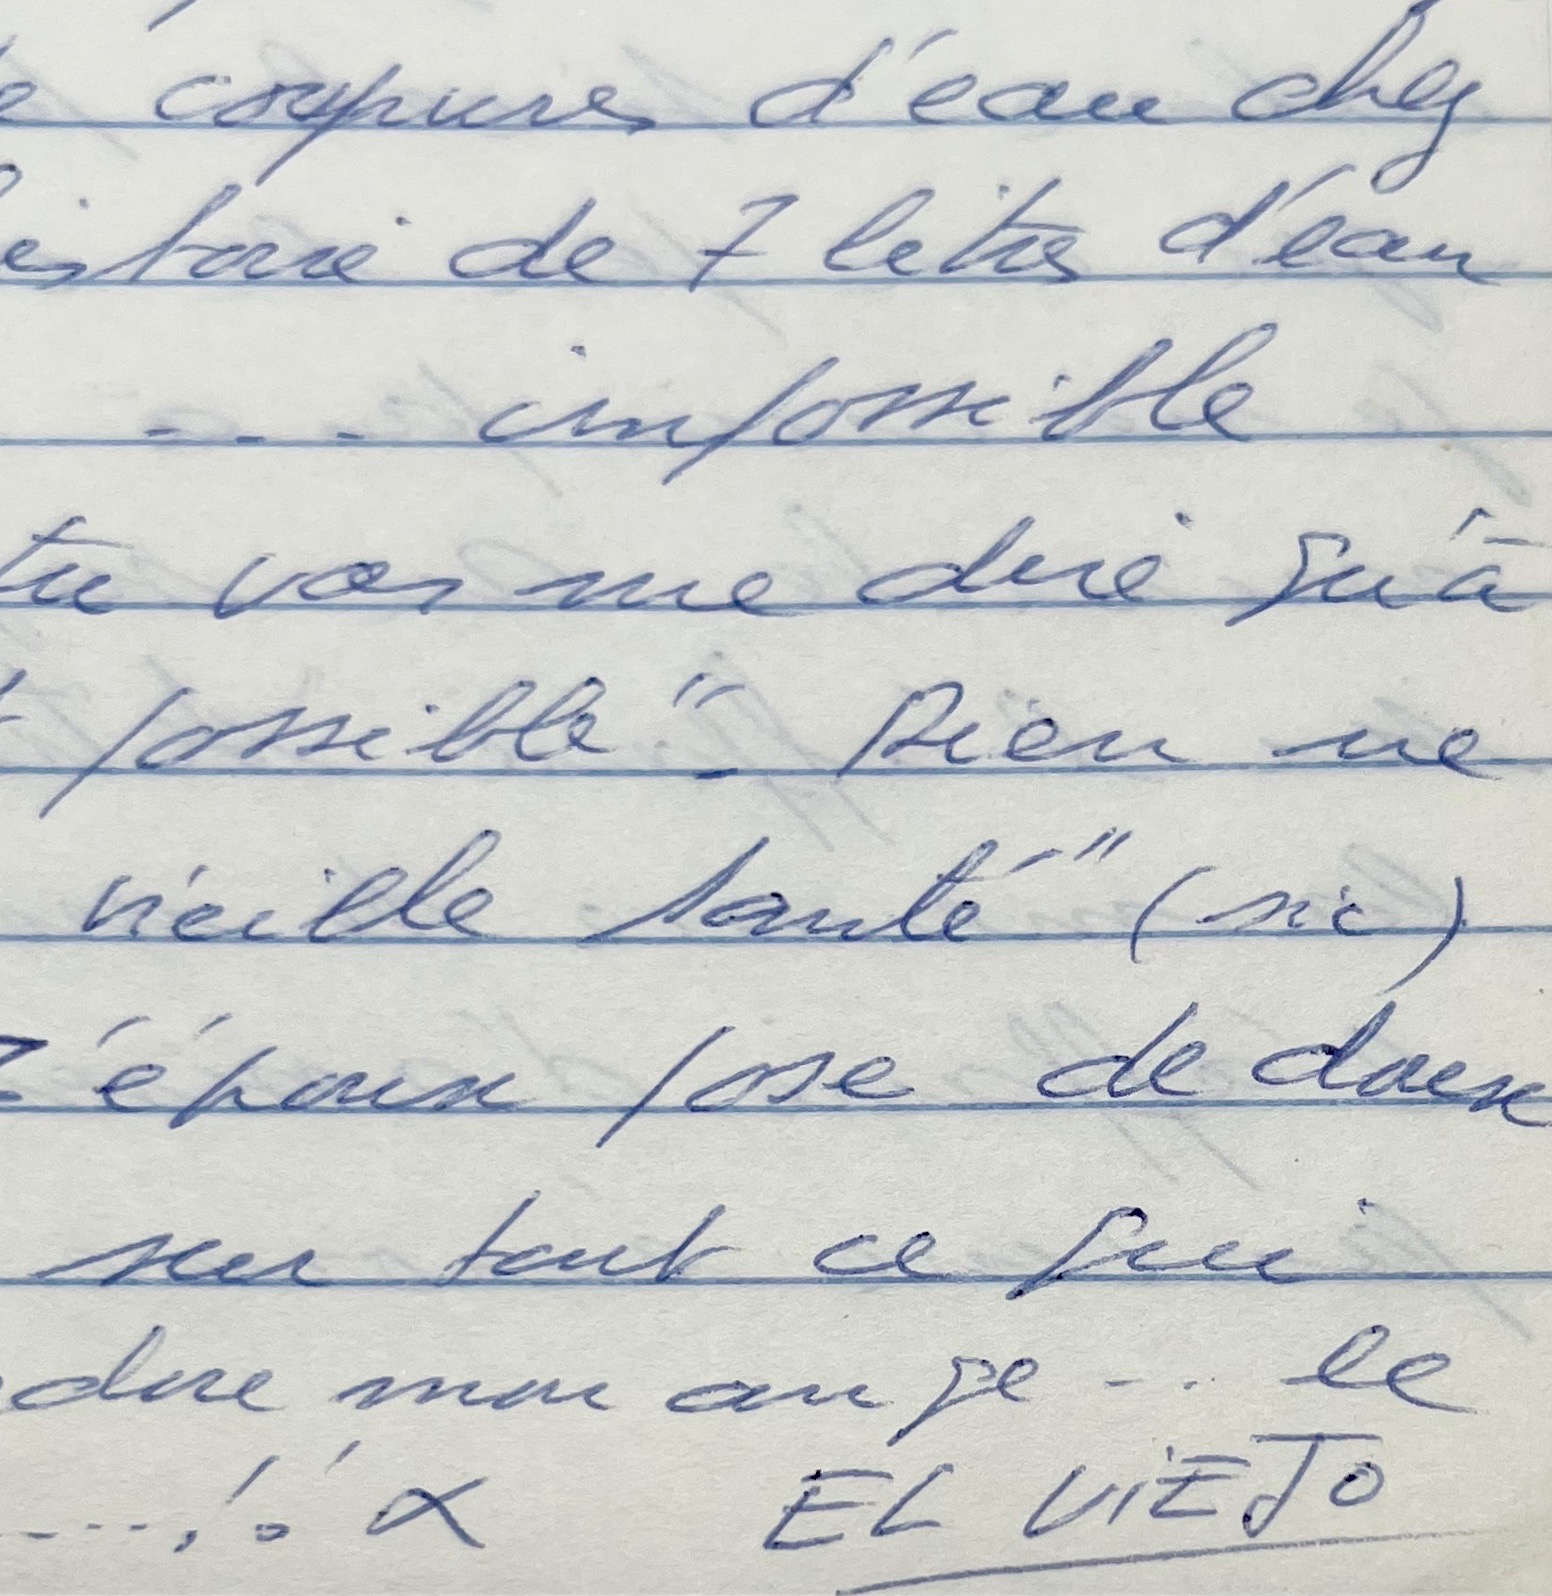 coupures d'eau chez
histoire de 7 litres d'eau
... impossible
tu vas me dire qu'à
possible". Rien ne
vieille santé" (sic)
pose de doux
sur tout ce qui
dire mon ange... le
....!. α EL ViEJO